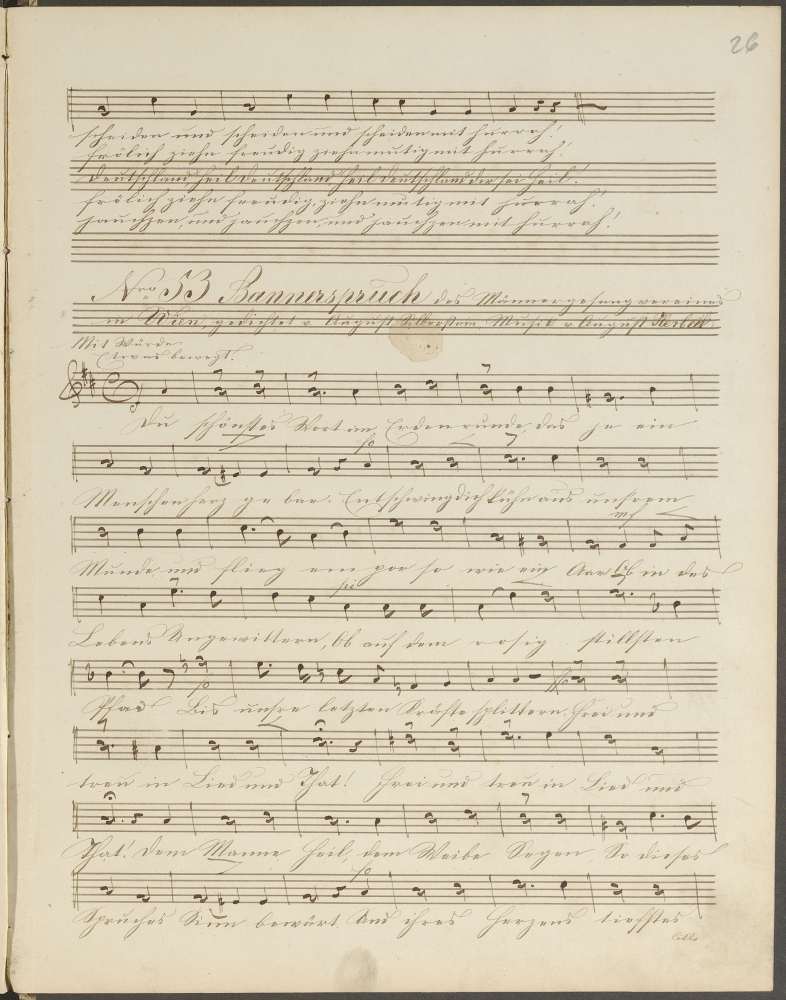 26
scheiden und scheiden und scheiden mit hurrah!
frölich ziehn freudig ziehn mutig mit hurrah!
Deutschland heil Deutschland heil Deutschland dir sei heil!
frölich ziehn freudig, ziehn mutig mit hurrah!
jauchzen, und jauchzen, und jauchzen mit hurrah!
Nro 53 Bannerspruch des Männergesangvereines
in Wien, gedichtet v. August Silberstein Musik v August
Mit Würde
Etwas bewegt.
Du schönstes Wort im Erdenrunde, das je ein
fo
Menschenherz gebar. Entschwing dich kühn aus unsrem
mf
Munde und flieg empor so wie ein Aar Ob in des
Lebens Ungewittern, Ob auf dem rosig stillsten
Pfad Bis unsre letzten Kräfte splittern. Frei und
treu in Lied und That! Frei und treu in Lied und
That! Dem Manne Heil, dem Weibe Segen, So dieses
fo
Spruches Sinn bewärt Und ihres Herzens tiefstes